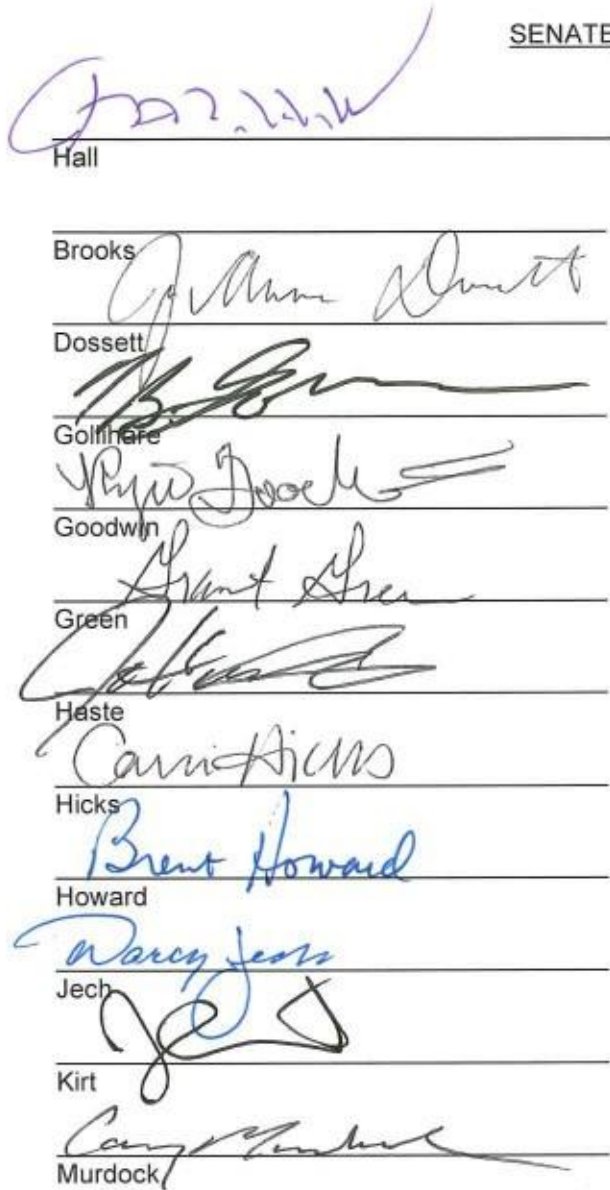 SENATE
Hall
Brooks
Jo Anna Dossett
Dossett
Gollihare
Goodwin
Grant Green
Green
Haste
Carri Hicks
Hicks
Brent Howard
Howard
Darcy Jech
Jech
Kirt
Casey Murdock
Murdock